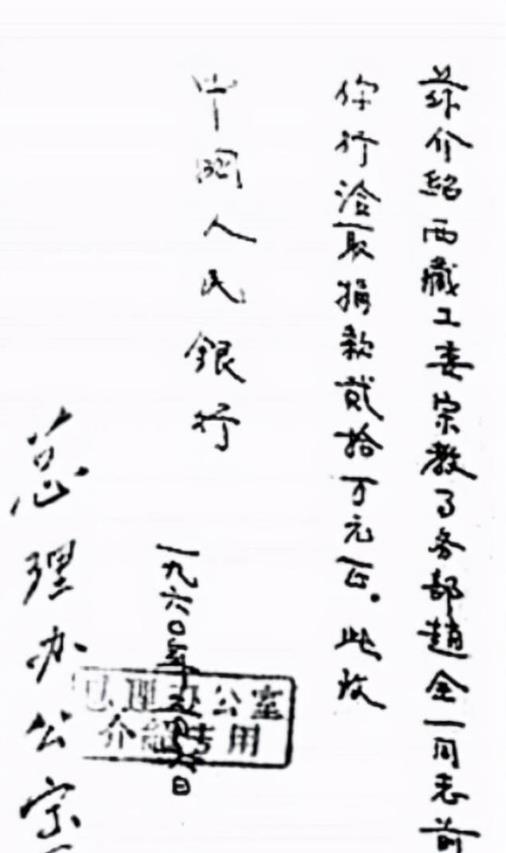 兹介绍西藏工委宗教事务部趙全一同志前
你行洽取捐款貳拾万元正。此致
中国人民銀行
总理办公室
一九六〇年五月 日
总理办公室
介紹专用